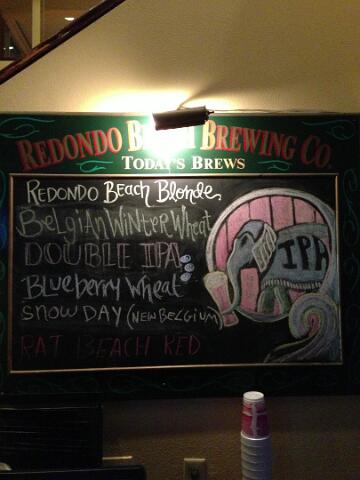 REDONDO BEACH BREWING CO.
TODAY'S BREWS
REDONDO BEACH BLONDE
BElgiAN WiNtER Wheat
DOUBLE IPA
Blueberry Wheat
SNOW DAY (NEW BELGIUM)
RAT BEACH RED
IPA